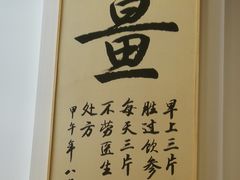 量
早上三片
胜过饮参
每天三片
不劳医生
处方
甲午年八